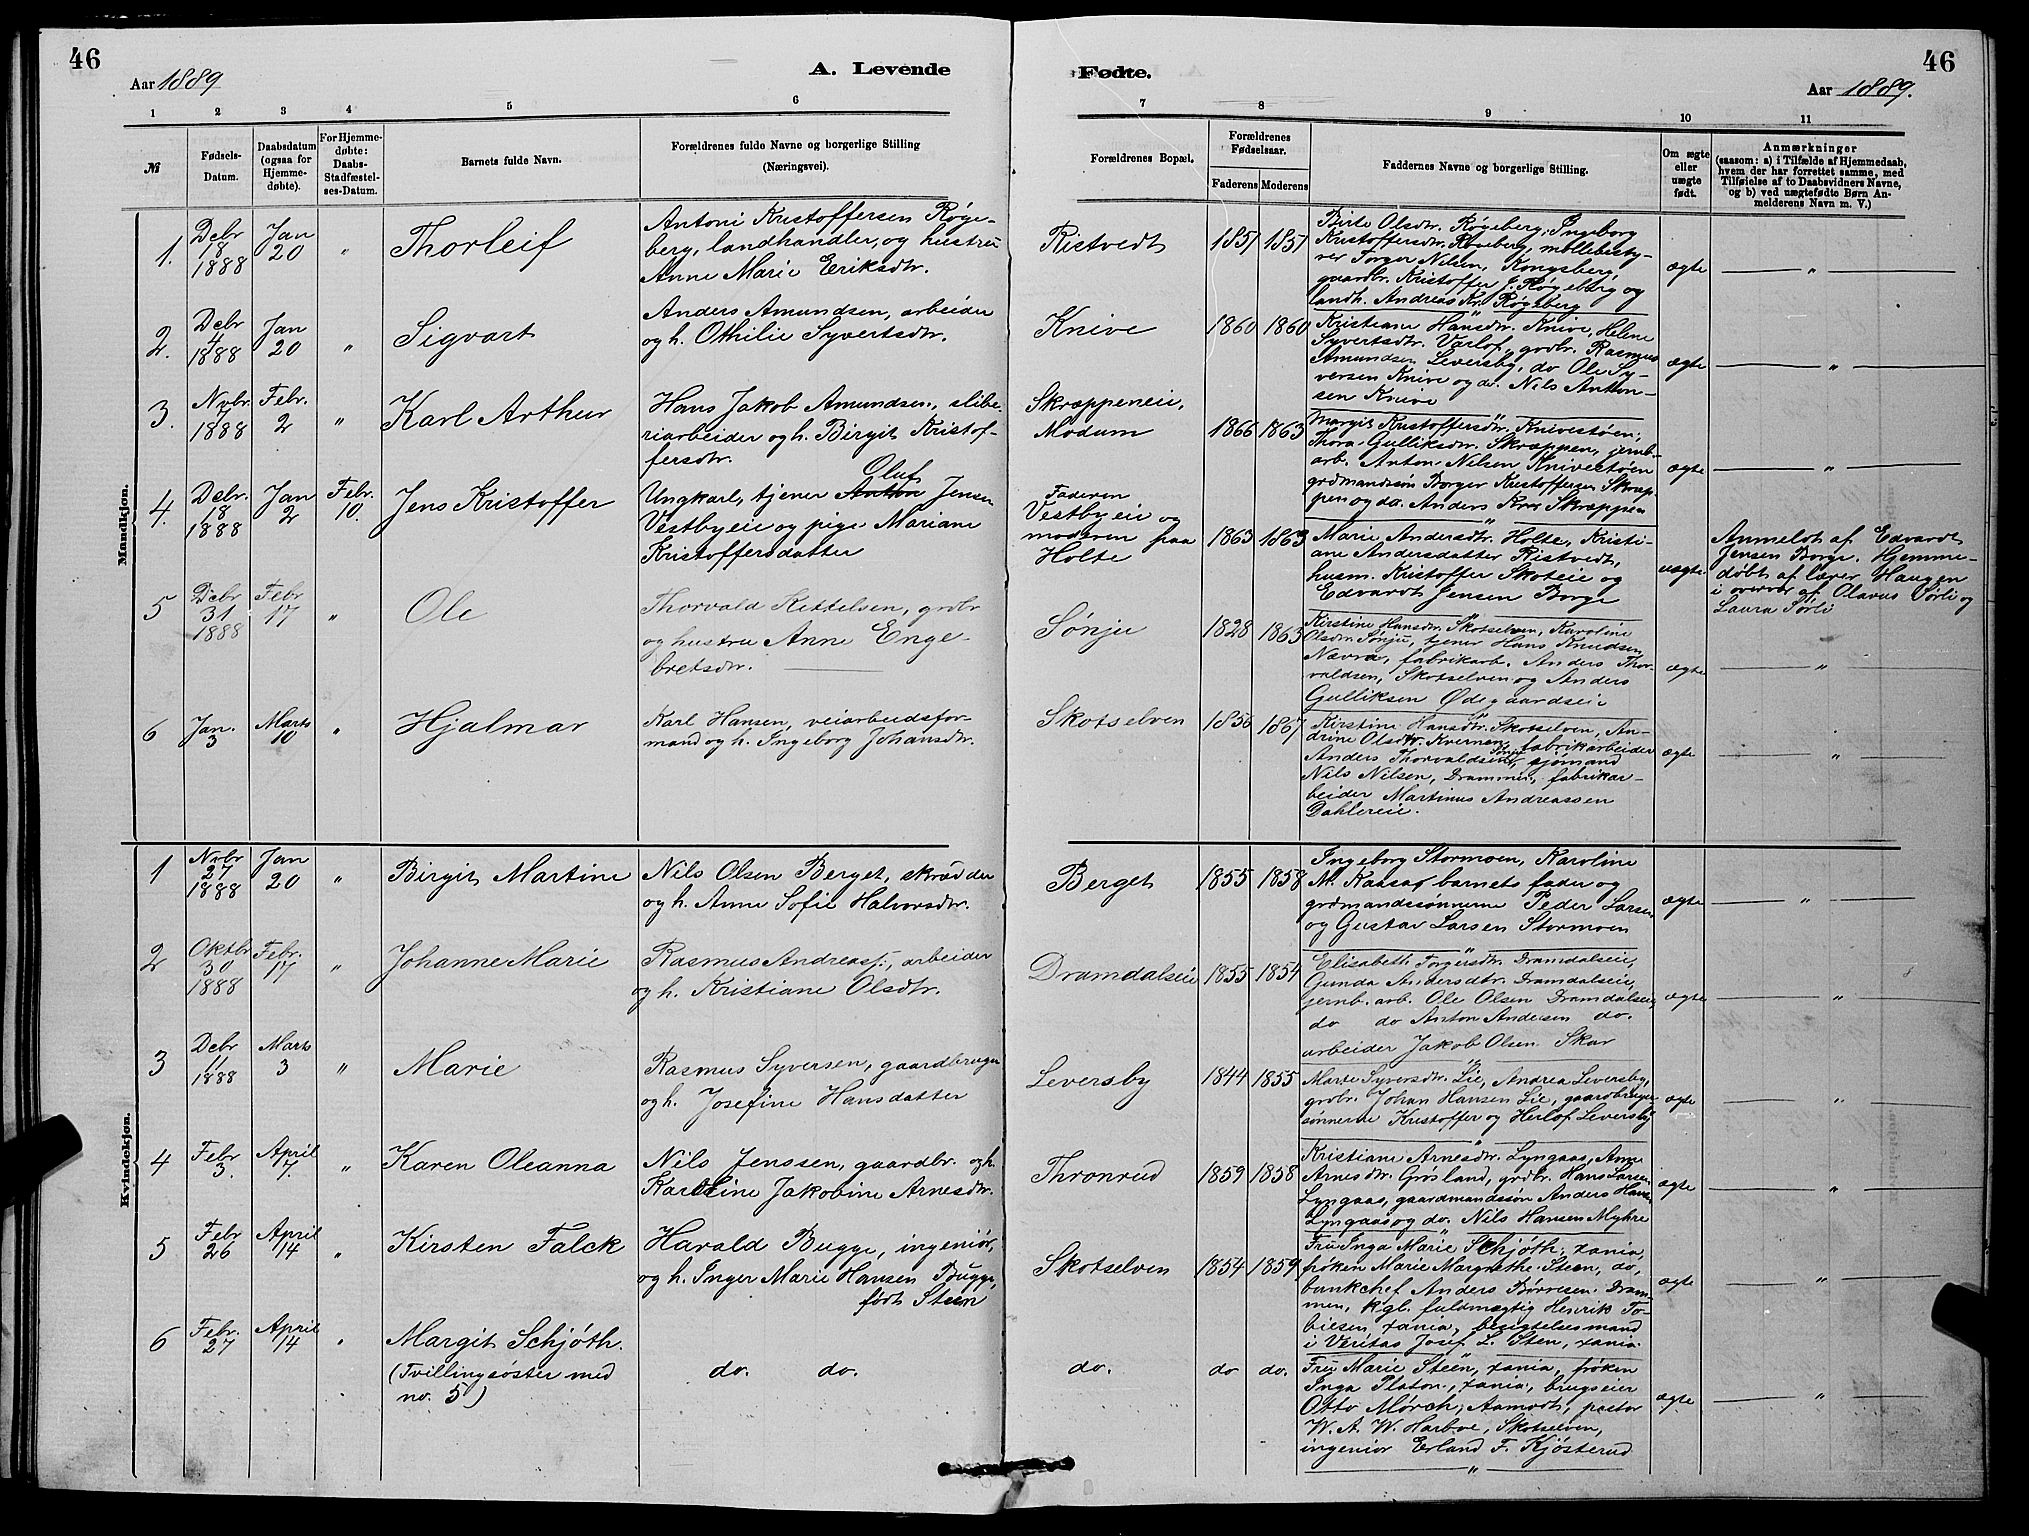 46
Aar 1889
A. Levende
Fødte.
46
Aar 1889.
1 2 3 4 5 6 7 8 9 10 11
№
Fødsels-
Datum.
Daabsdatum
(ogsaa for
Hjemme-
døbte).
For Hjemme-
døbte:
Daabs-
Stadfæstel-
ses-Datum.
Barnets fulde Navn.
Forældrenes fulde Navne og borgerlige Stilling
(Næringsvei).
Forældrenes Bopæl.
Forældrenes
Fødselsaar.
Faderens Moderens
Faddernes Navne og borgerlige Stilling.
Om ægte
eller
uægte
født.
Anmærkninger
(saasom: a) i Tilfælde af Hjemmedaab,
hvem der har forrettet samme, med
Tilføielse af to Daabsvidners Navne,
og b) ved uægtefødte Børn An-
melderens Navn m. V.)
Mandkjøn.
1.
Debr
18
1888
Jan
20
"
Thorleif
Antoni Kristoffersen Røge-
berg, landhandler, og hustru
Anne Marie Eriksdtr.
Ristvedt
1851 1851
Birte Olsdtr. Røgeberg, Ingeborg
Kristoffersdtr. Røgeberg, møllebesty-
rer Torger Nilsen, Kongsberg,
gaardbr. Kristoffer J. Røgeberg og
landh. Andreas Kr. Røgeberg
ægte
"
2.
Debr
4
1888
Jan
20
"
Sigvart
Anders Amundsen, arbeider
og h. Othilie Syvertsdtr.
Knive
1860 1860
Kristiane Hansdtr. Knive, Helene
Syvertsdtr. Varlof, grdbr. Rasmus
Amundsen Leversby, do Ole Sy-
versen Knive og do. Nils Anton-
sen Knive
ægte
"
3.
Nvbr.
7
1888
Febr.
2
"
Karl Arthur
Hans Jakob Amundsen, slibe-
riarbeider og h. Birgit Kristof-
fersdtr.
Skræppeneie,
Modum
1866 1863
Margit Kristoffersdtr. Knivestøen,
Thora Gulliksdtr. Skræppen, jernb.
arb. Anton Nilsen Knivestøen
grdmandssøn Borger Kristoffersen Skræp-
pen og do. Anders Skræppen
ægte
"
4.
Debr.
18
1888
Jan
2
Febr.
10.
Jens Kristoffer
Oluf
Ungkarl, tjener Anton Jensen
Vestbyeie og pige Mariane
Kristoffersdatter
Faderen
Vestbyeie og
moderen paa
Holte
1863 1863
Marie Andersdtr. Holte, Kristi-
ane Andersdatter Ristvedt,
husm. Kristoffer Skoteie og
Edvardt Jensen Borge
uægte.
Anmeldt af Edvardt
Jensen Borge. Hjemme-
døbt af lærer Haugen
i overvær af Olavus Sørli og
Laura Sørli
5
Debr
31
1888
Febr
17
"
Ole
Thorvald Kittelsen, grdbr
og hustru Anne Enge-
bretsdtr.
Sønju
1828 1863
Kirstine Hansdtr. Skotselven, Karoline
Olsdtr. Sønju, tjener Hans Knudsen
Nævra, fabrikarb. Anders Thor-
valdsen, Skotselven og Anders
Gulliksen Ødegaardseie
ægte
"
6
Jan.
3
Marts
10
"
Hjalmar
Karl Hansen, veiarbeidsfor-
mand og h. Ingeborg Johansdtr.
Skotselven
1856 1867
Kirstine Hansdtr. Skotselven, An-
drine Olsdtr. Kvernen, fabrikarbeider
Anders Thorvaldsen Sønju, sjømand
Nils Nilsen, Drammen, fabrikar-
beider Martinus Andreassen
Dahlereie.
ægte
"
Kvindekjøn.
1
Nvbr
27
1888
Jan
20
"
Birgit Martine
Nils Olsen Berget, skrædder
og h. Anne Sofie Halvorsdtr.
Berget
1855 1858
Ingeborg Stormoen, Karoline
M. Kaasa, barnets fader og
grdmandssønnerne Peder Larsen
og Gustav Larsen Stormoen
ægte
"
2
Oktbr
30
1888
Febr.
17
"
Johanne Marie
Rasmus Andreass., arbeider
og h. Kristiane Olsdtr.
Dramdalseie
1855 1854
Elisabeth Torgersdtr. Dramdalseie,
Gunda Andersdtr. Dramdalseie,
jernb. arb. Ole Olsen Dramdalseie,
do do Anton Andersen do.
arbeider Jakob Olsen Skar
ægte
"
3
Debr
11
1888
Marts
3
"
Marie
Rasmus Syversen, gaardbruger
og h. Josefine Hansdatter
Leversby
1844 1855
Marte Syversdtr. Lie, Andrea Leversby,
grdbr. Johan Hansen Lie, gaardbruger-
sønnerne Kristoffer og Herlof Leversby
ægte
"
4
Febr
3.
April
7.
"
Karen Oleanna
Nils Jenssen, gaardbr. og h.
Karoline Jakobine Arnesdtr.
Thronrud
1859 1858
Kristiane Arnesdtr. Lyngaas, Anne
Arnesdtr. Grøsland, grdbr. Hans Larsen
Lyngaas, gaardmandssøn Anders Hans.
Lyngaas og do. Nils Hansen Myhre
ægte
"
5
Febr
26
April
14
"
Kirsten Falck
Harald Bugge, ingeniør,
og h. Inger Marie Hansen Bugge,
født Steen
Skotselven
1854 1859
Fru Inga Marie Schjøth, xania,
frøken Marie Margrethe Steen, do,
bankchef Anders Børresen Dram-
men, kgl. fuldmægtig Henrik To-
biesen, xania, besigtelsesmand
i Veritas Josef L. Sten, xania.
ægte
"
6
Febr.
27
April
14
"
Margit Schjøth.
(Tvillingsøster med
no. 5)
do. do.
do.
do do.
Fru Marie Steen, xania, frøken
Inga Platon, xania, brugseier
Otto Mørch, Aamodt, pastor
W. A. W. Harboe, Skotselven,
ingeniør Erland F. Kjøsterud
ægte
"